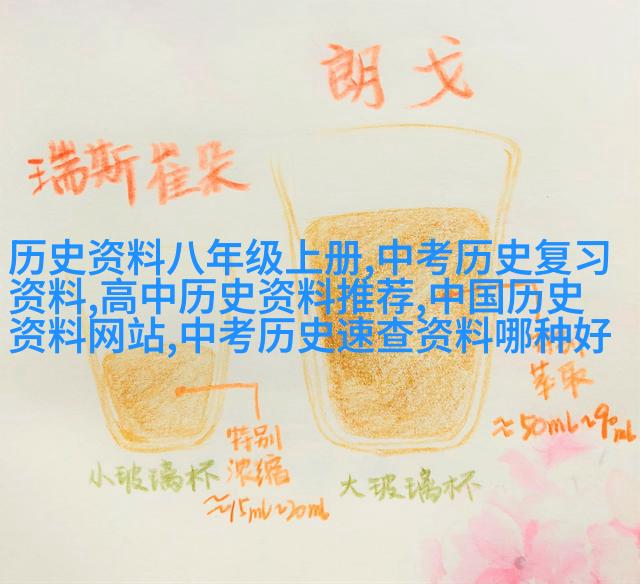 朗戈
瑞斯崔朵
历史资料八年级上册,中考历史复习
资料,高中历史资料推荐,中国历史
资料网站,中考历史速查资料哪种好
萃取
≈50ml~90ml
特别
浓缩
小玻璃杯
≈15ml~20ml
大玻璃杯